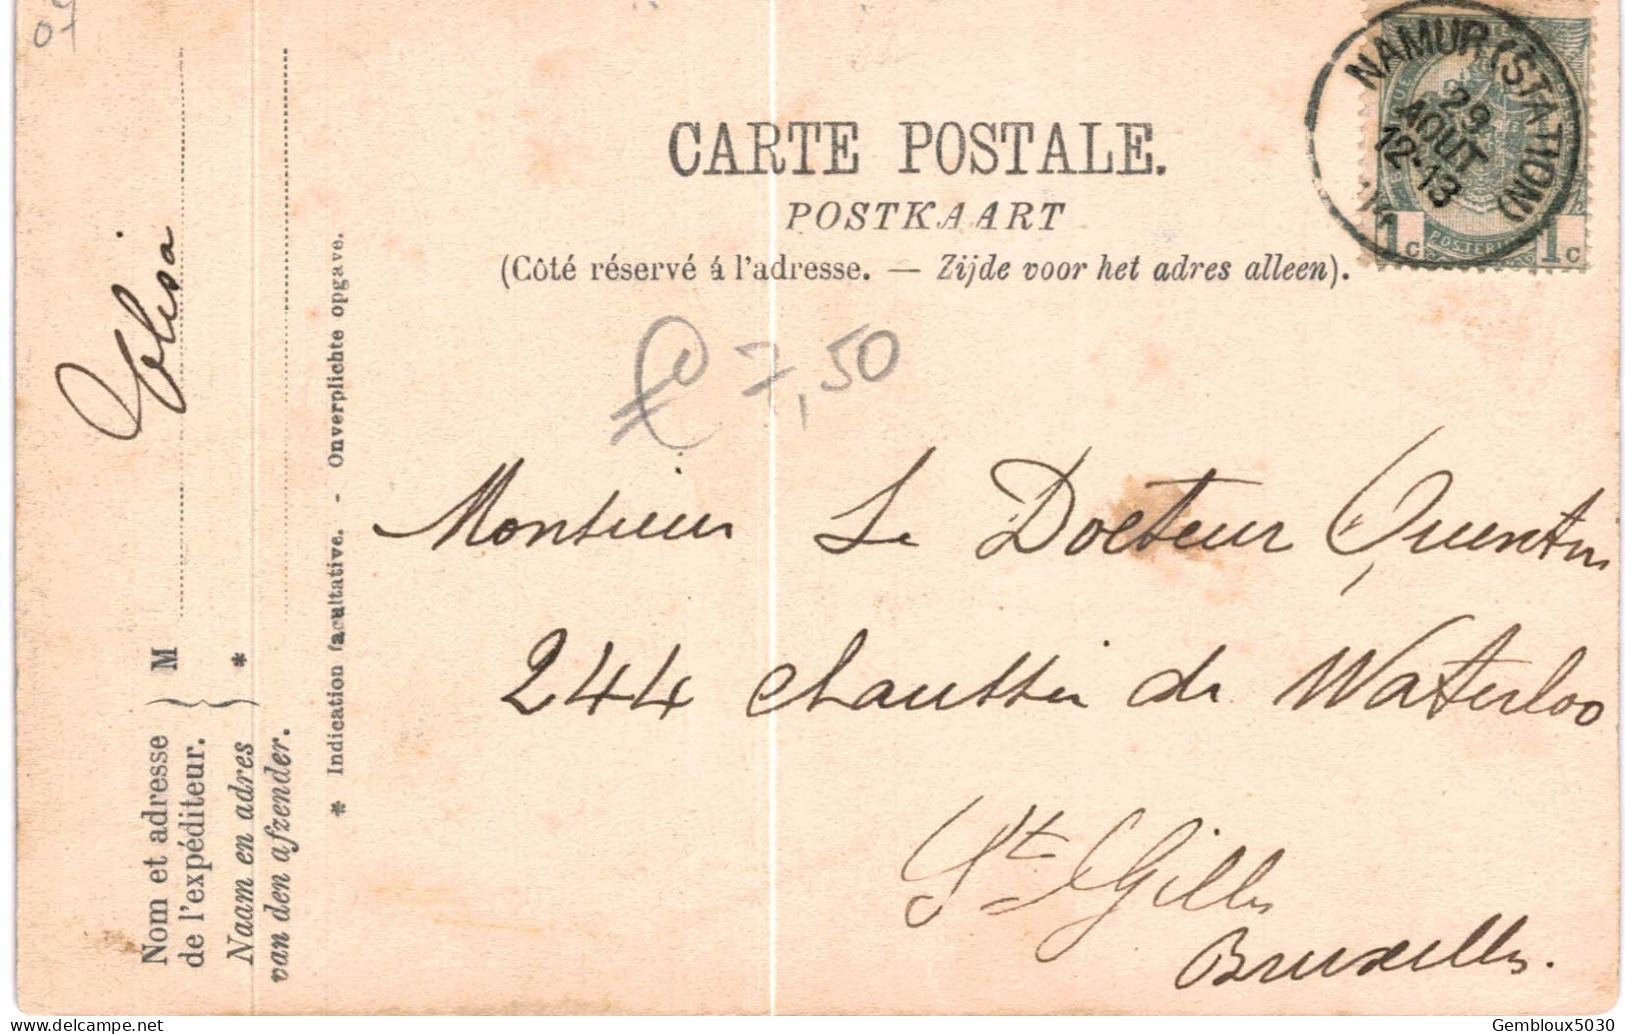 07
NAMUR (STATION)
29
AOUT
12-13
1c POSTERIJ 1c
CARTE POSTALE.
POSTKAART
(Côté réservé á l'adresse. — Zijde voor het adres alleen).
£ 7,50
Monsieur Le Docteur Quentin
244 chaussée de Waterloo
St Gilles
Bruxelles.
Elisa
M
*
Nom et adresse
de l'expéditeur.
Naam en adres
van den afzender.
* Indication facultative. - Onverplichte opgave.
Gembloux5030